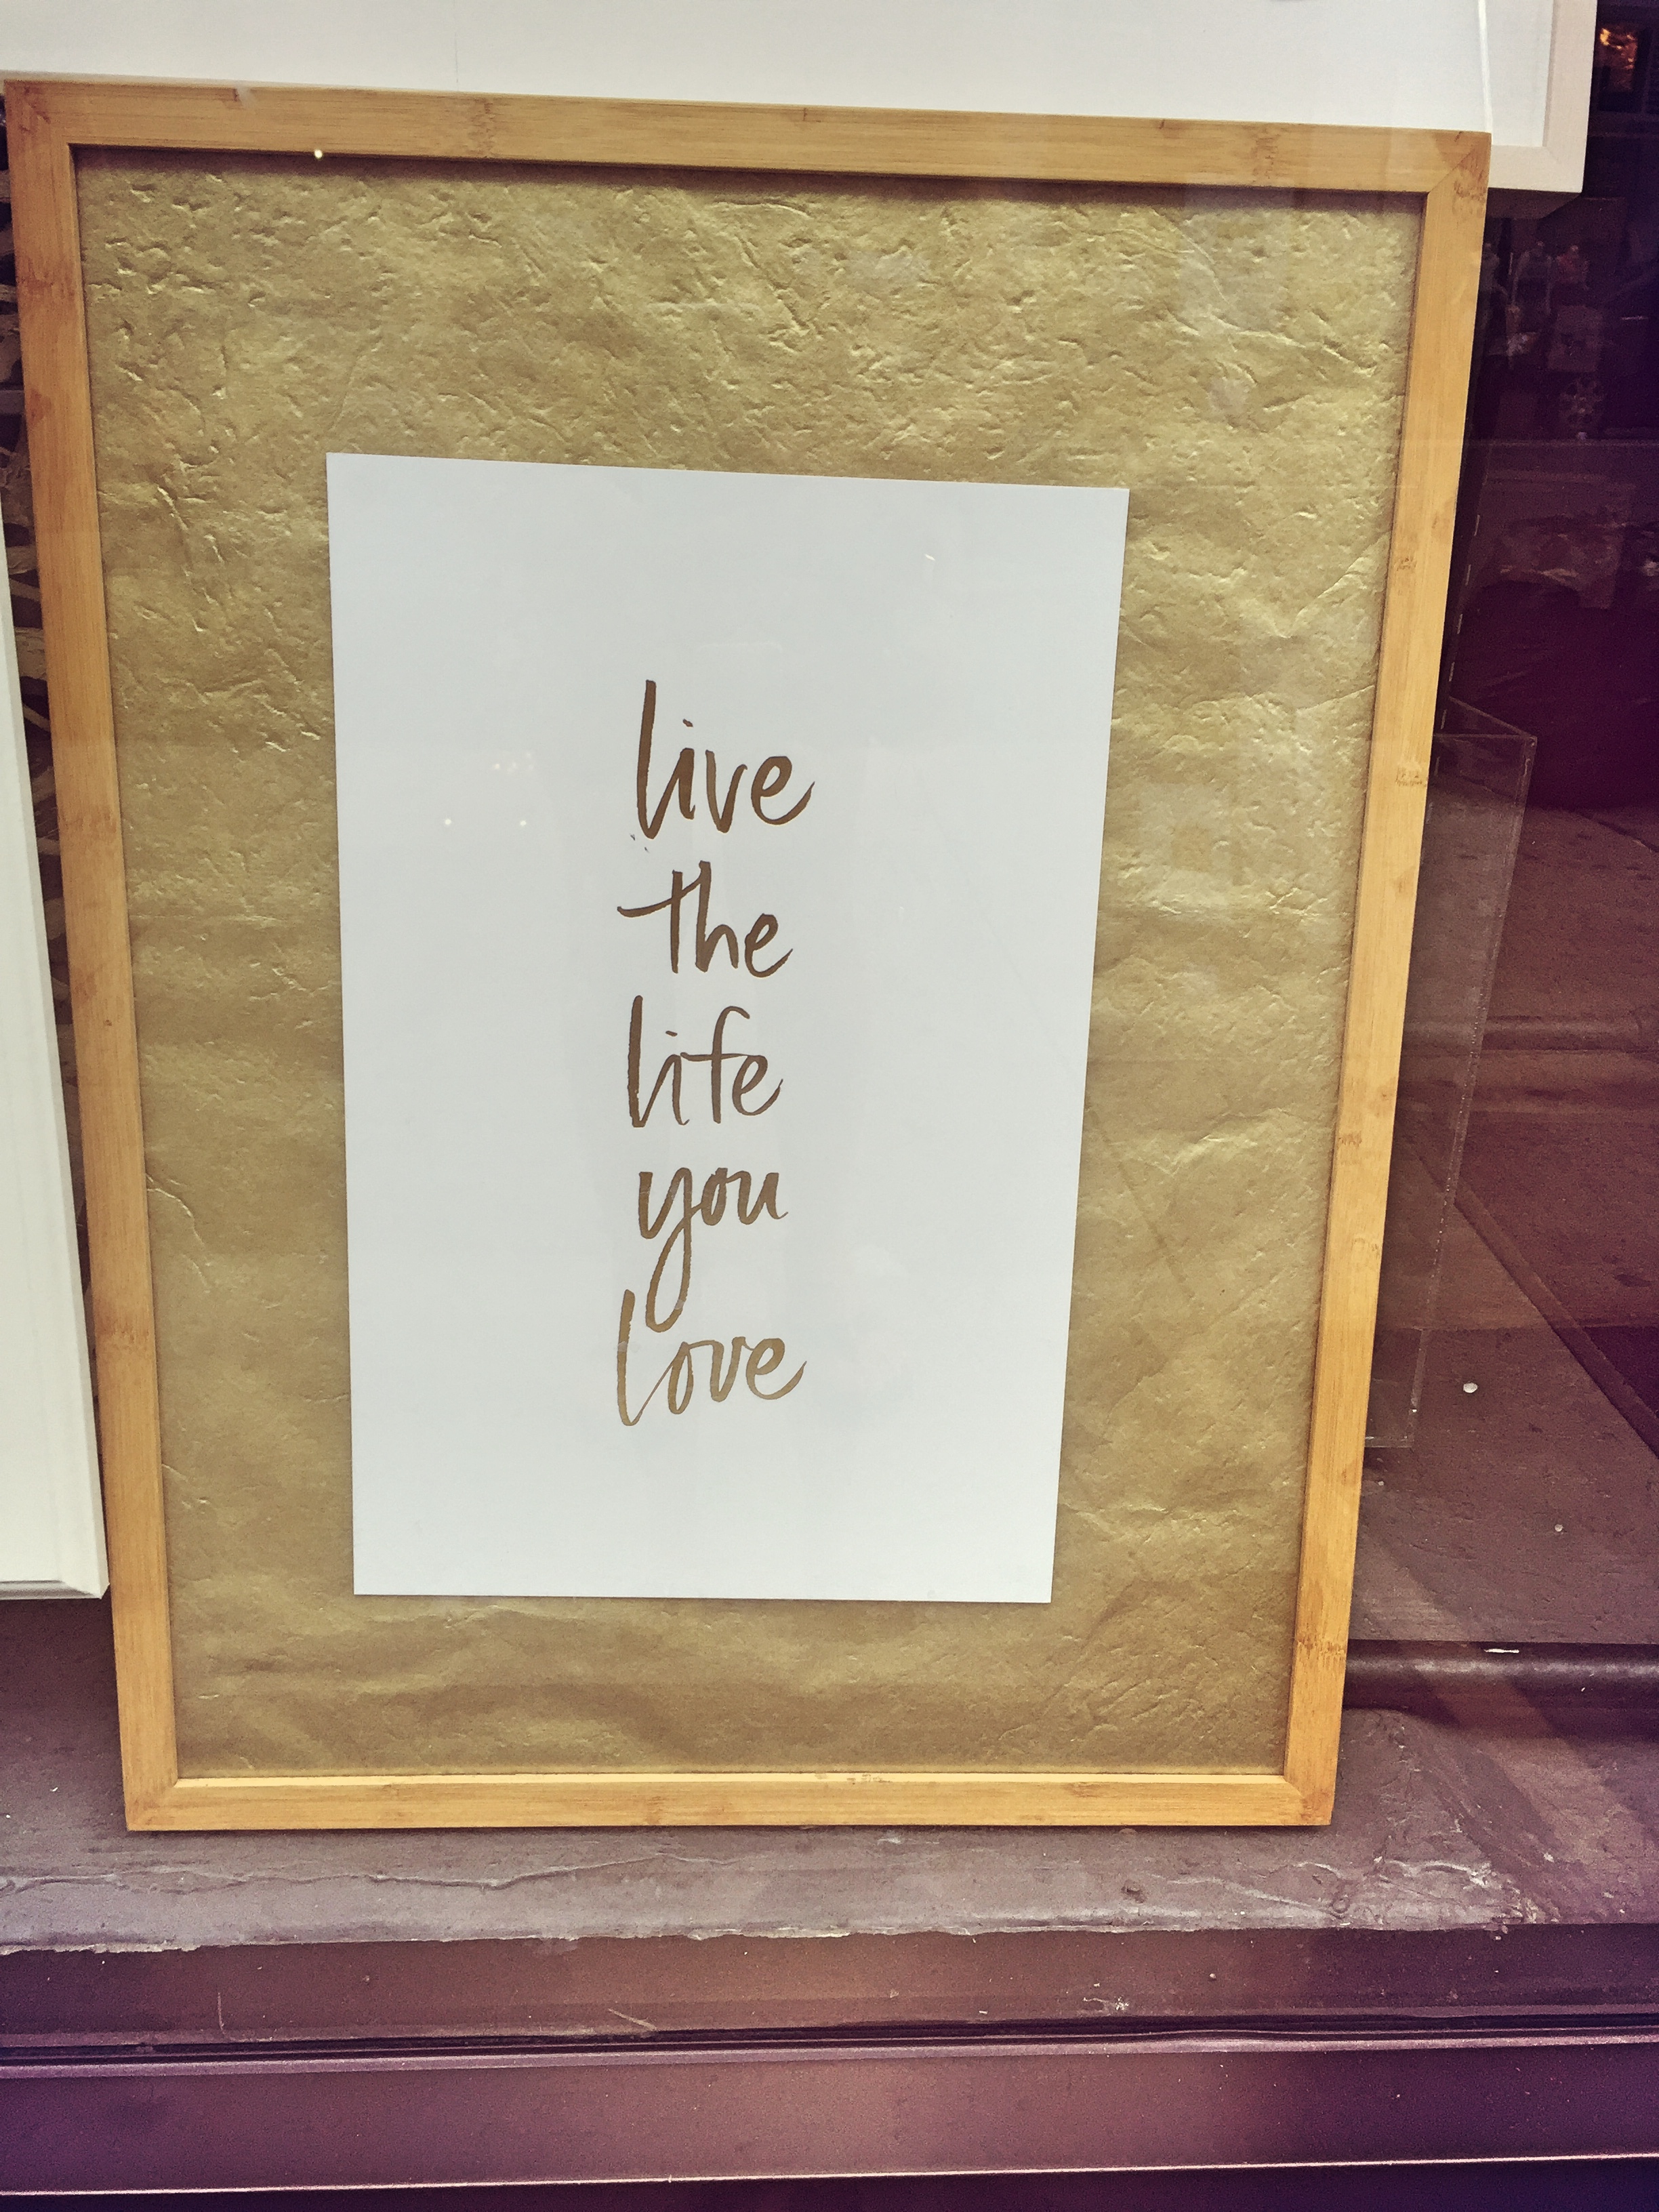 live
the
life
you
love